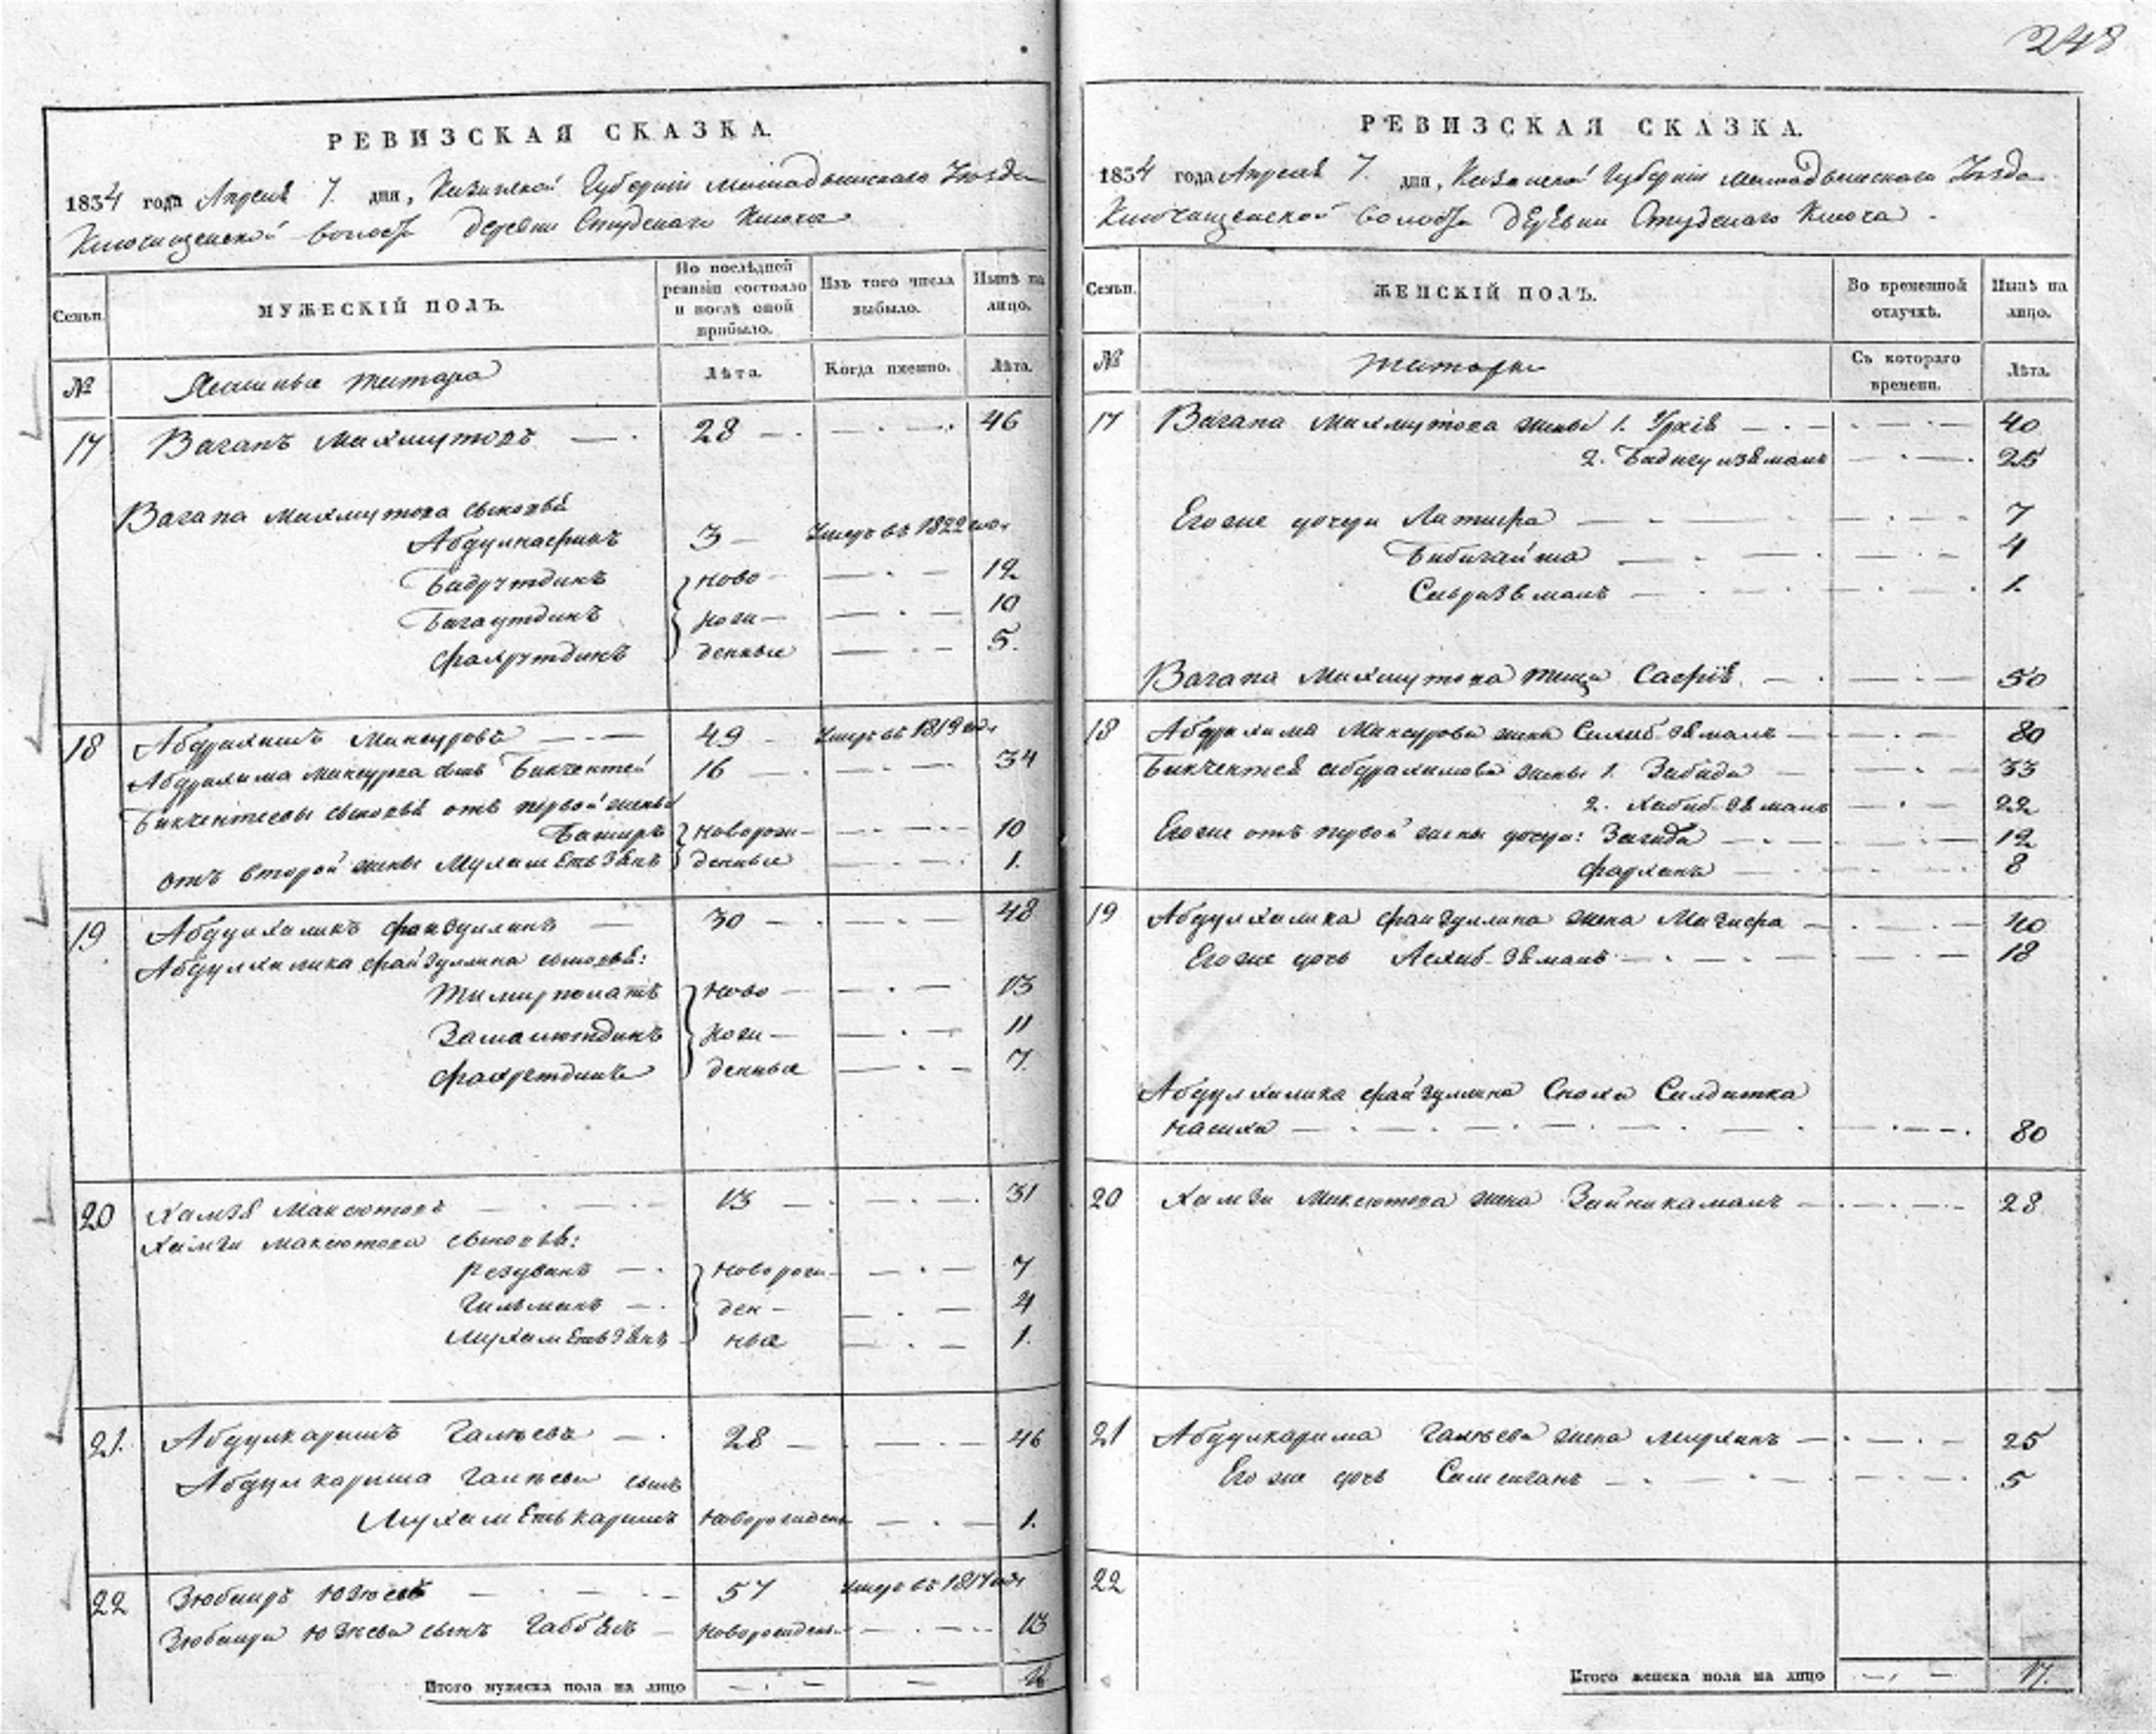 248
РЕВИЗСКАЯ СКАЗКА.
1834 года Апреля 7. дня, Казанской Губернии Мамадышскаго Уѣзда
Ключищенской волости деревни Студенаго Ключа
Семьи.
МУЖЕСКІЙ ПОЛЪ.
По послѣдней ревизіи состояло и послѣ оной прибыло.
Изъ того числа выбыло.
Нынѣ на лицо.
№
Ясашные татара
Лѣта.
Когда именно.
Лѣта.
17 Вагапъ Махмутовъ — . 28 — . — . — . 46
Вагапа Махмутова сыновья
Абдулнасыръ 3 — Умеръ въ 1822 год.
Бадрутдинъ ново — — . — 12
Багаутдинъ рож — — . — 10
Фахрутдинъ денные — . — 5.
18 Абдрахимъ Мансуровъ — . — 49 — Умеръ въ 1819 год.
Абдрахима Мансурова сынъ Бикчентей 16 — . — . — 34
Бикчентеевы сыновья отъ первой жены
Баширъ новорож — — . — . 10
отъ второй жены Мухаметьзянъ денные — . — . 1.
19 Абдулхаликъ Файзуллинъ — 30 — . — . — 48
Абдулхалика Файзуллина сыновья:
Тимирполатъ ново — — . — 13
Замалютдинъ рож — — . — 11
Фахретдинъ денные — . — 7.
20 Хамзя Максютовъ — . — . — 13 — . — . — . 31
Хамзи Максютова сыновья:
Резуванъ — . новорож — — . — 7
Гильманъ — . ден — — . — 4
Мухаметьзянъ ные — . — 1.
21. Абдулкаримъ Галеевъ — . 28 — . — . — 46
Абдулкарима Галеева сынъ
Мухаметькаримъ новорожден — . — 1.
22 Зюбаиръ Юзеевъ — . — . — 57 умеръ въ 1817 год.
Зюбаира Юзеева сынъ Габбасъ — новорожден. — . — . 13
Итого мужеска пола на лицо — . — — 16
РЕВИЗСКАЯ СКАЗКА.
1834 года Апреля 7. дня, Казанской Губернии Мамадышскаго Уѣзда
Ключищенской волости деревни Студенаго Ключа.
Семьи.
ЖЕНСКІЙ ПОЛЪ.
Во временной отлучкѣ.
Нынѣ на лицо.
№
Татарки
Съ котораго времени.
Лѣта.
17 Вагапа Махмутова жены 1. Уркія — . — . — . — 40
2. Бадигулзямалъ — . — . 25
Его же дочери Латифа — . — . — . 7
Бибигайша — . — . — 4
Сарвизямалъ — . — . — . 1.
Вагапа Махмутова теща Сафія. — . — . — 50
18 Абдрахима Мансурова жена Сахибзямалъ — . — . — 80
Бикчентея Абдрахимова жены 1. Забида — . — . — 33
2. Хабибзямалъ — . — 22
Его же отъ первой жены дочери: Загида — . — . — 12
Фархана — . — . — 8
19 Абдулхалика Файзуллина жена Магифа — . — . — 40
Его же дочь Асхибзямалъ — . — . — . — 18
Абдулхалика Файзуллина Сноха Салдатка
Насиха — . — . — . — . — . 80
20 Хамзи Максютова жена Зайникамалъ — . — . — 28
21 Абдулкарима Галеева жена Марханъ — . — . — 25
Его же дочь Самсиганъ — . — . — . — 5
22
Итого женска пола на лицо — . — 17.